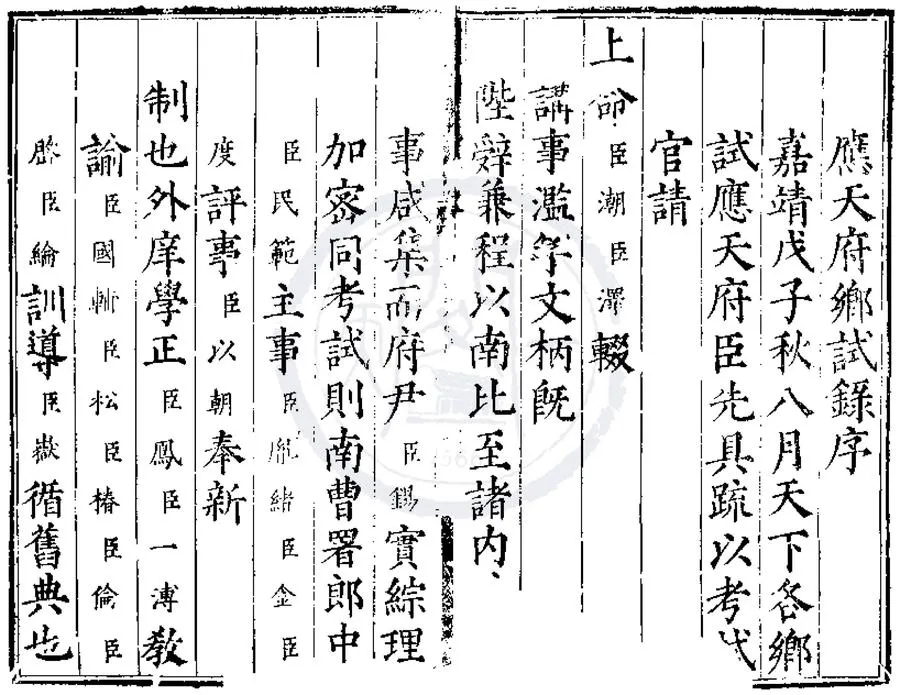 應天府鄉試錄序
嘉靖戊子秋八月天下各鄉
試應天府臣先具疏以考試
官請
上命臣潮臣澤輟
講事濫竽文柄既
陛辭兼程以南比至諸內
事咸集而府尹臣錫實綜理
加密同考試則南曹署郎中
臣民範主事臣胤緒臣金臣
度評事臣以朝奉新
制也外庠學正臣鳳臣一溥教
諭臣國輔臣松臣椿臣倫臣
啓臣綸訓導臣嶽循舊典也